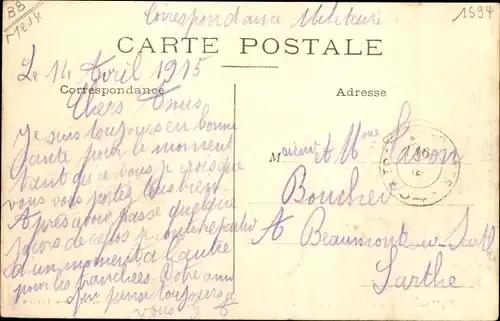 BB
1594
Correspondance Militaire
CARTE POSTALE
Le 14 Avril 1915
Correspondance
Adresse
Chers Amis
Je suis toujours en bonne
santé pour le moment
tant qu'a vous je crois que
vous vous portez tous bien
Après avoir passé quelque
jours de repos je vais repartir
d un moment a l'autre
pour les tranchées. Votre ami
qui pense toujours a
vous
Monsieur et Mme
Boucher
A Beaumont sur Sarthe
Sarthe